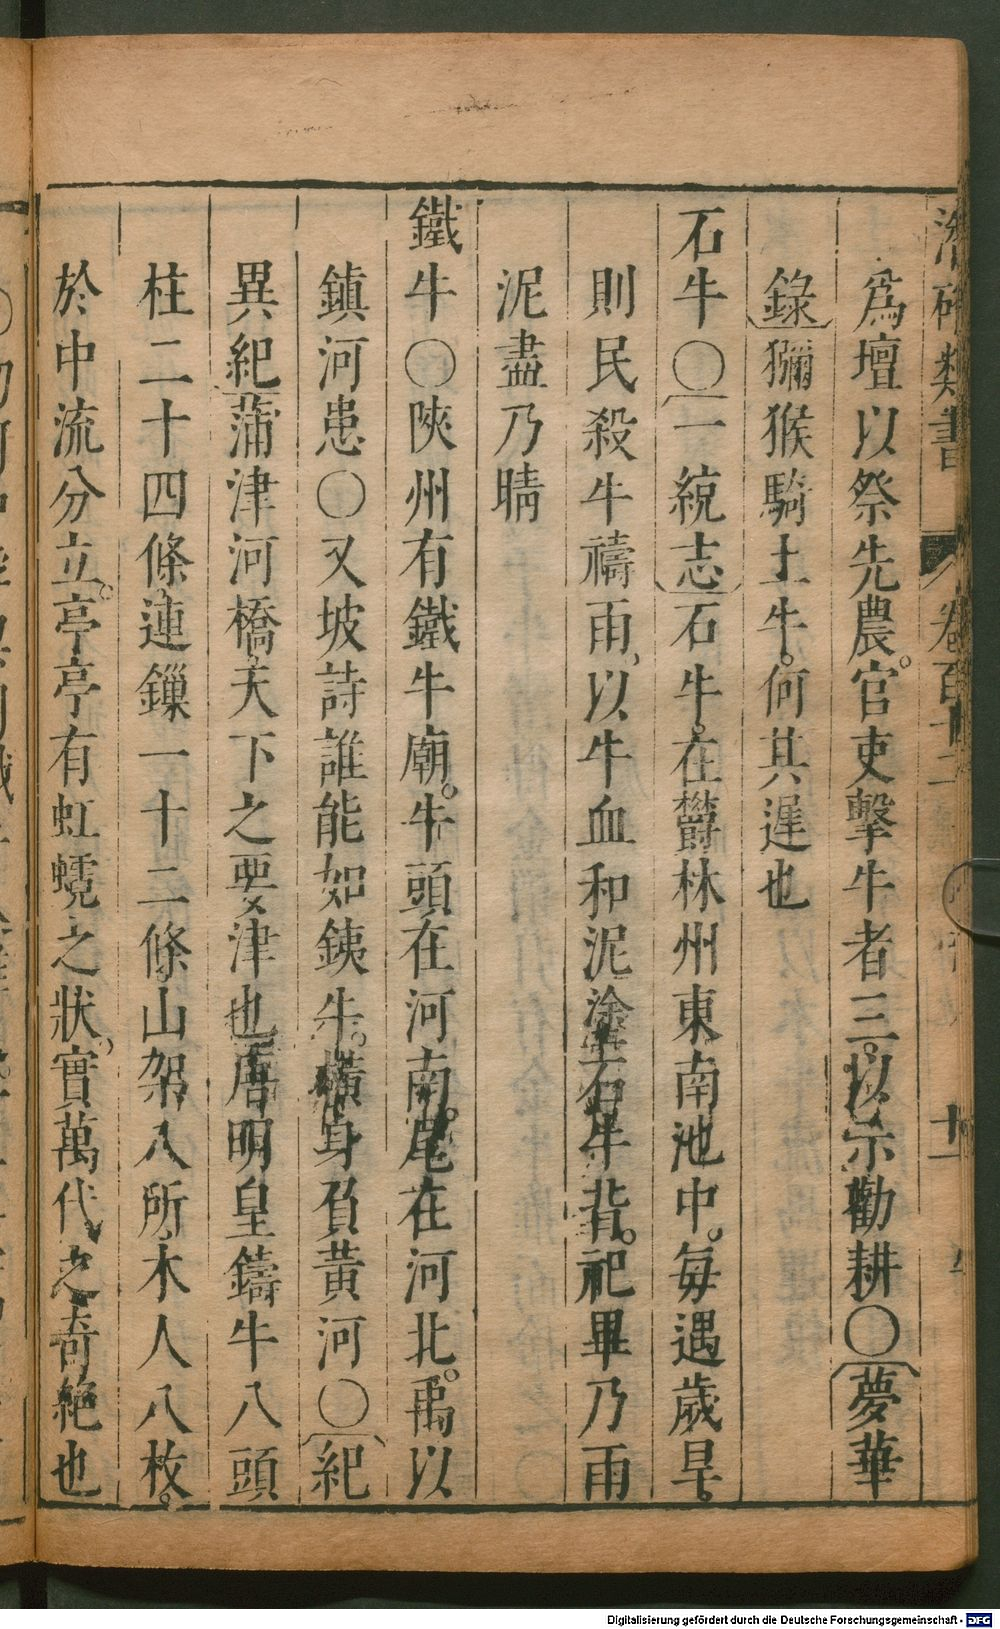 爲壇以祭先農。官吏擊牛者三。以示勸耕〇夢華
錄獼猴騎土牛。何其遲也
石牛〇一統志石牛。在欝林州東南池中。每遇歲旱。
則民殺牛禱雨。以牛血和泥塗石牛背。祀畢乃雨
泥盡乃晴
鐵牛〇陝州有鐵牛廟。牛頭在河南。尾在河北。禹以
鎮河患〇又坡詩誰能如鉄牛。橫身負黃河〇紀
異紀蒲津河橋。天下之要津也唐明皇鑄牛八頭
柱二十四條連鏁一十二條山架八所。木人八枚。
於中流分立。亭亭有虹蜺之狀。實萬代之奇絕也
類書
卷百十二
十
Digitalisierung gefördert durch die Deutsche Forschungsgemeinschaft - DFG